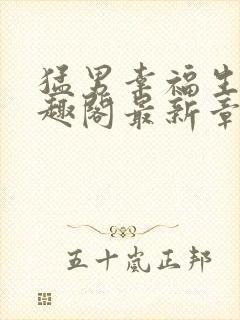 猛男幸福生
趣阁最新章
五十嵐正邦